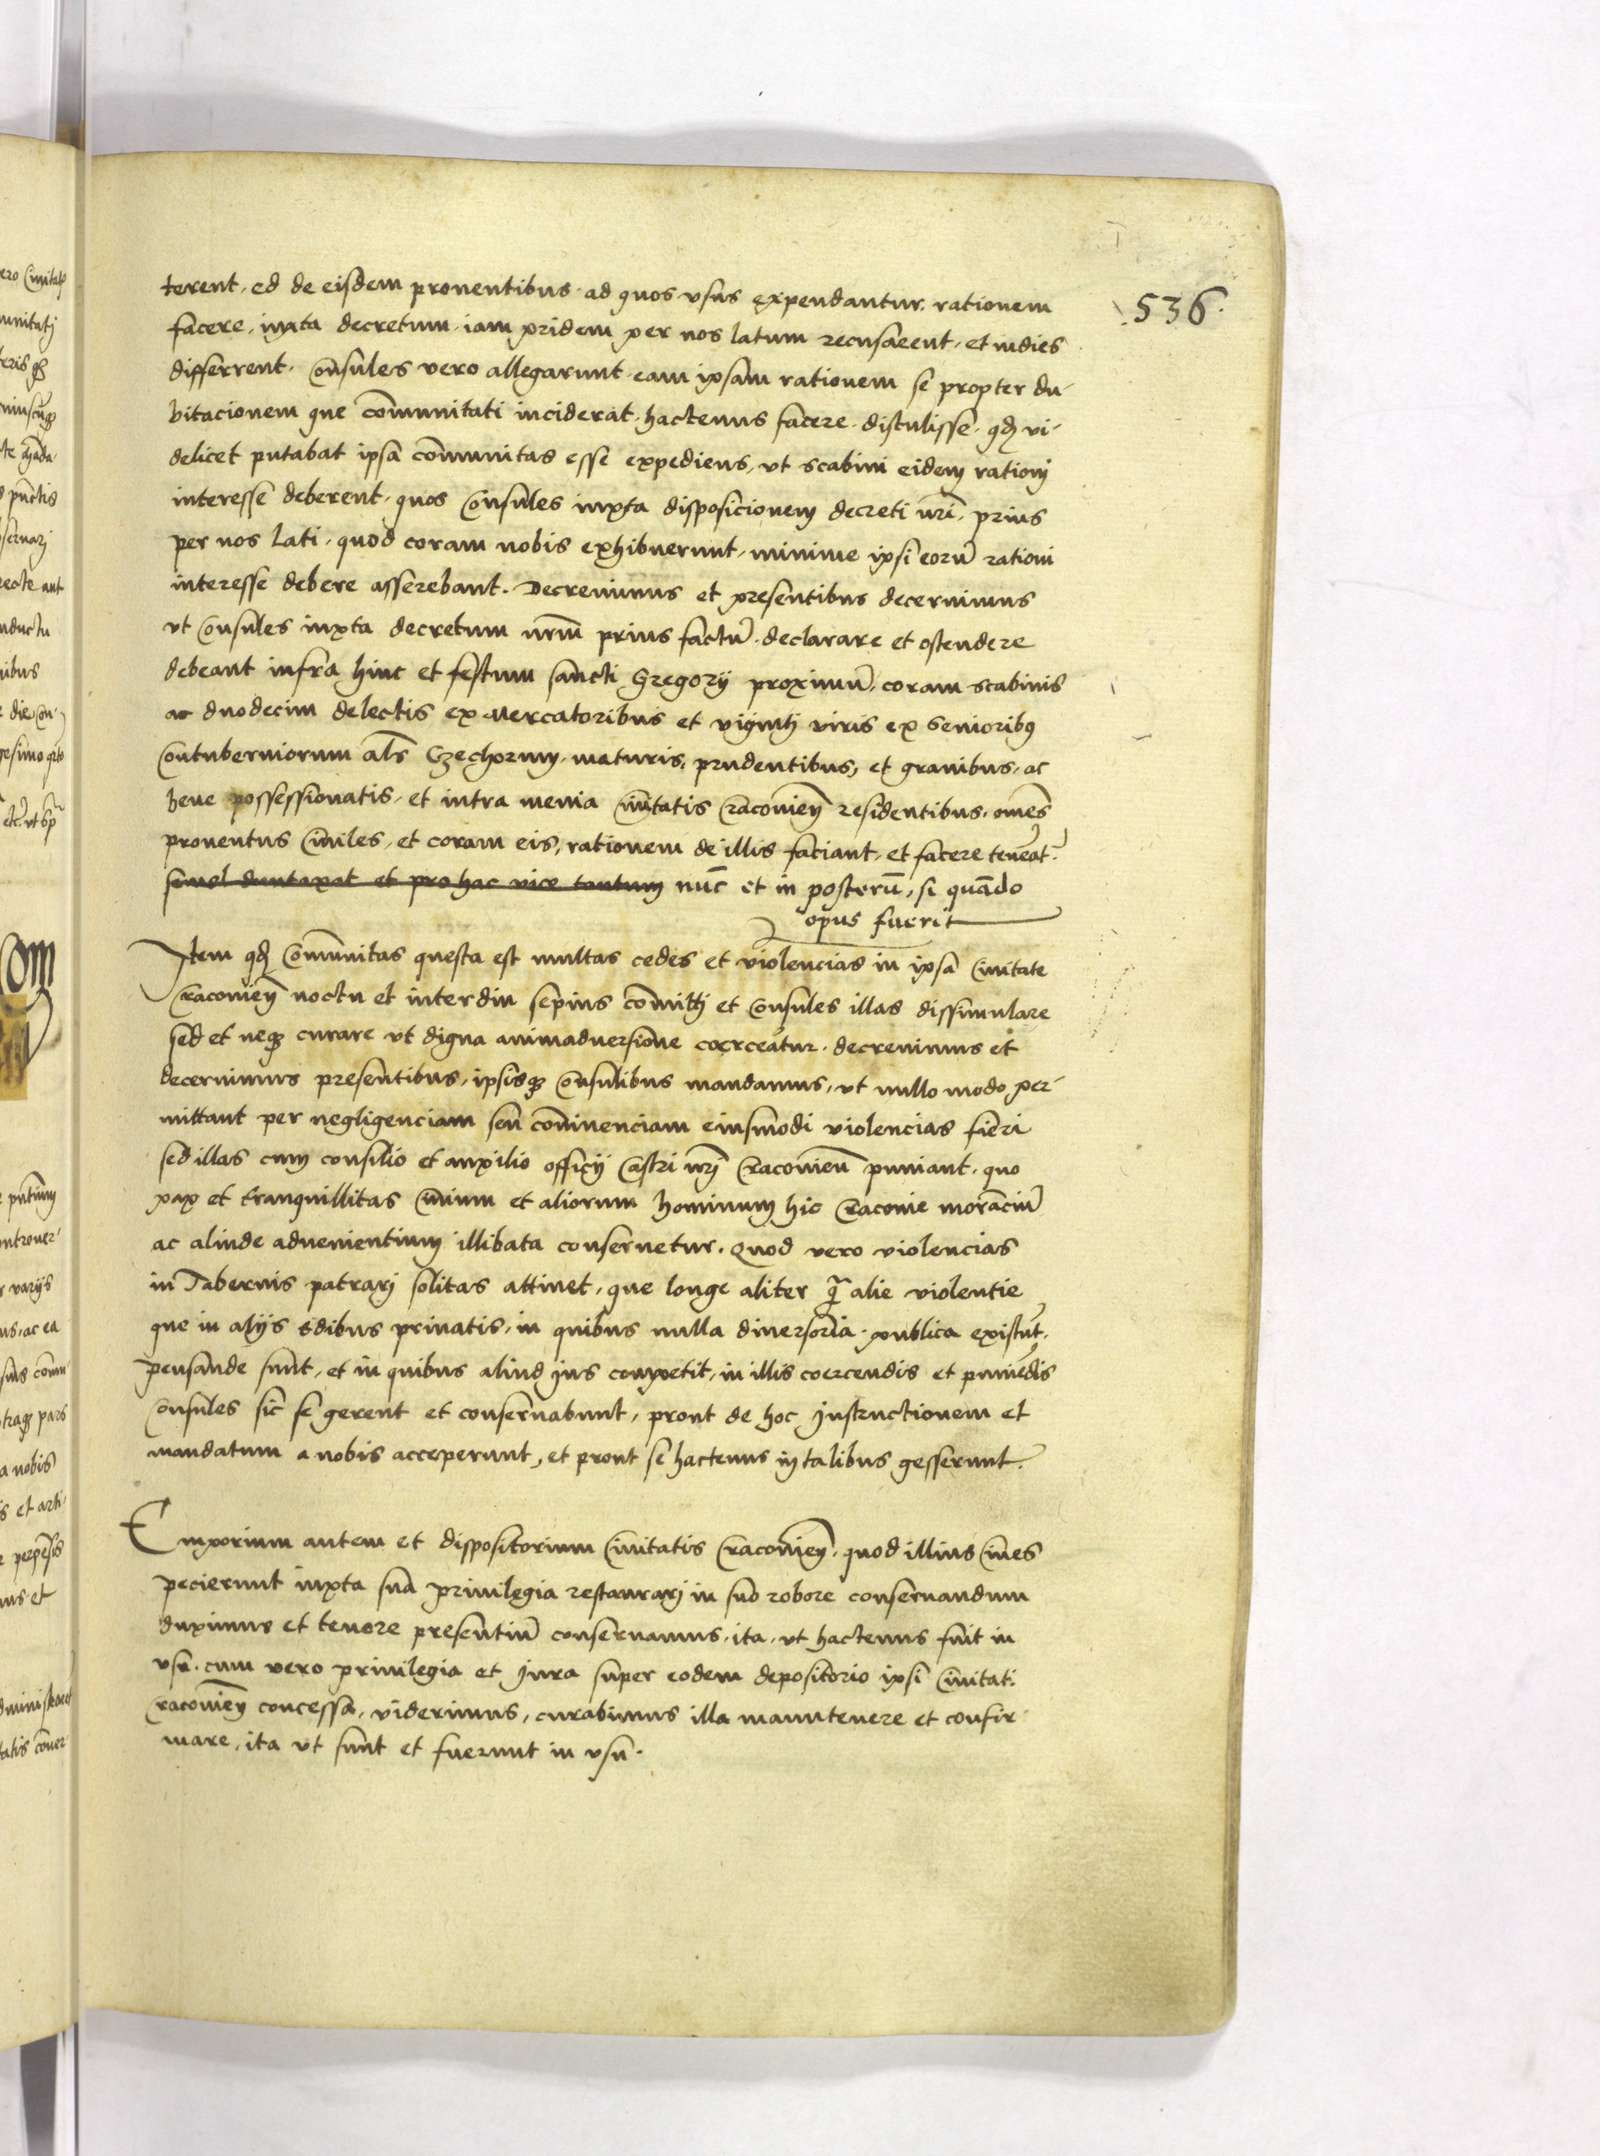 terent, ed de eisdem prouentibus ad quos vsus expendantur, rationem
.536.
facere, iuxta decretum iam pridem per nos latum recusarent, et indies
differrent. Consules vero allegarunt eam ipsam rationem se propter du-
bitacionem que comunitati inciderat, hactenus facere distulisse, qd vi-
delicet putabat ipsa comunitas esse expediens, vt scabini eidem rationj
interesse deberent, quos Consules iuxta disposicionem decreti nri, prius
per nos lati, quod coram nobis exhibuerunt, minime ipsi eoru rationi
interesse debere asserebant. Decreuimus et presentibus decernimus
vt Consules iuxta decretum nrm prius factu, declarare et ostendere
debeant infra hinc et festum sancti Gregorij proximu, coram scabinis
ac duodecim delectis ex Mercatoribus et viginti viris ex Senioribus
Contuberniorum als Czechorum, maturis, prudentibus, et grauibus, ac
bene possessionatis, et intra menia Ciuitatis Cracouien residentibus, omes
prouentus Ciuiles, et coram eis, rationem de illis faciant, et facere teneat.
semel duntaxat et pro hac vice tantum nuc et in posteru, si quado
opus fuerit
Item qd Comunitas questa est multas cedes et violencias in ipsa Ciuitate
Cracouien noctu et interdiu sepius comitti et Consules illas dissimulare
sed et neq curare vt digna animaduersione coerceatur. decreuimus et
decernimus presentibus, ipsisq Consulibus mandamus, vt nullo modo per-
mittant per negligenciam seu conniuenciam eiusmodi violencias fieri
sed illas cum consilio et auxilio officij Castri nri Cracouien puniant, quo
pax et tranquillitas Ciuium et aliorum hominum hic Cracouie moranciu
ac aliunde aduenientium illibata conseruetur. Quod vero violencias
in Tabernis patrarj solitas attinet, que longe aliter q alie violentie
que in alijs edibus priuatis, in quibus nulla diuersoria publica existut,
pensande sunt, et in quibus aliud jus competit, in illis coercendis et puniedis
Consules sic se gerent et conseruabunt, prout de hoc Instructionem et
mandatum a nobis acceperunt, et prout se hactenus in talibus gesserunt.
Emporium autem et dispositorium Ciuitatis Cracouien, quod illius Ciues
pecierunt iuxta sua priuilegia restaurarj in suo robore conseruandum
duximus et tenore presentiu conseruamus, ita, vt hactenus fuit in
vsu. cum vero priuilegia et Jura super eodem depositorio ipsi Ciuitati
Cracouien concessa, viderimus, curabimus illa manutenere et confir-
mare, ita vt sunt et fuerunt in vsu.